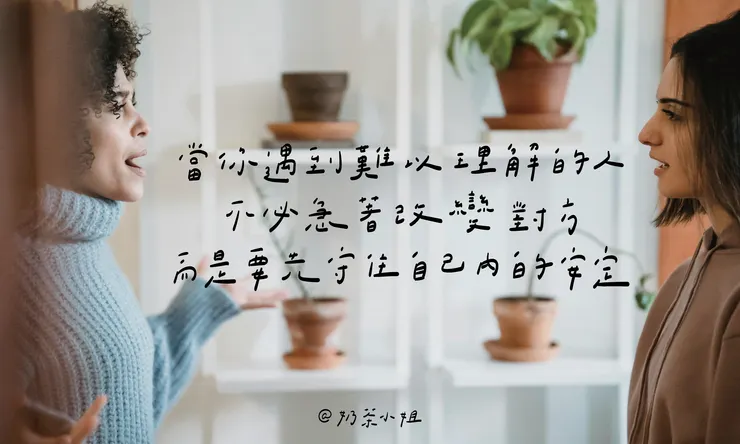 當你遇到難以理解的人
不必急著改變對方
而是要先守住自己內的安定
@奶茶小姐